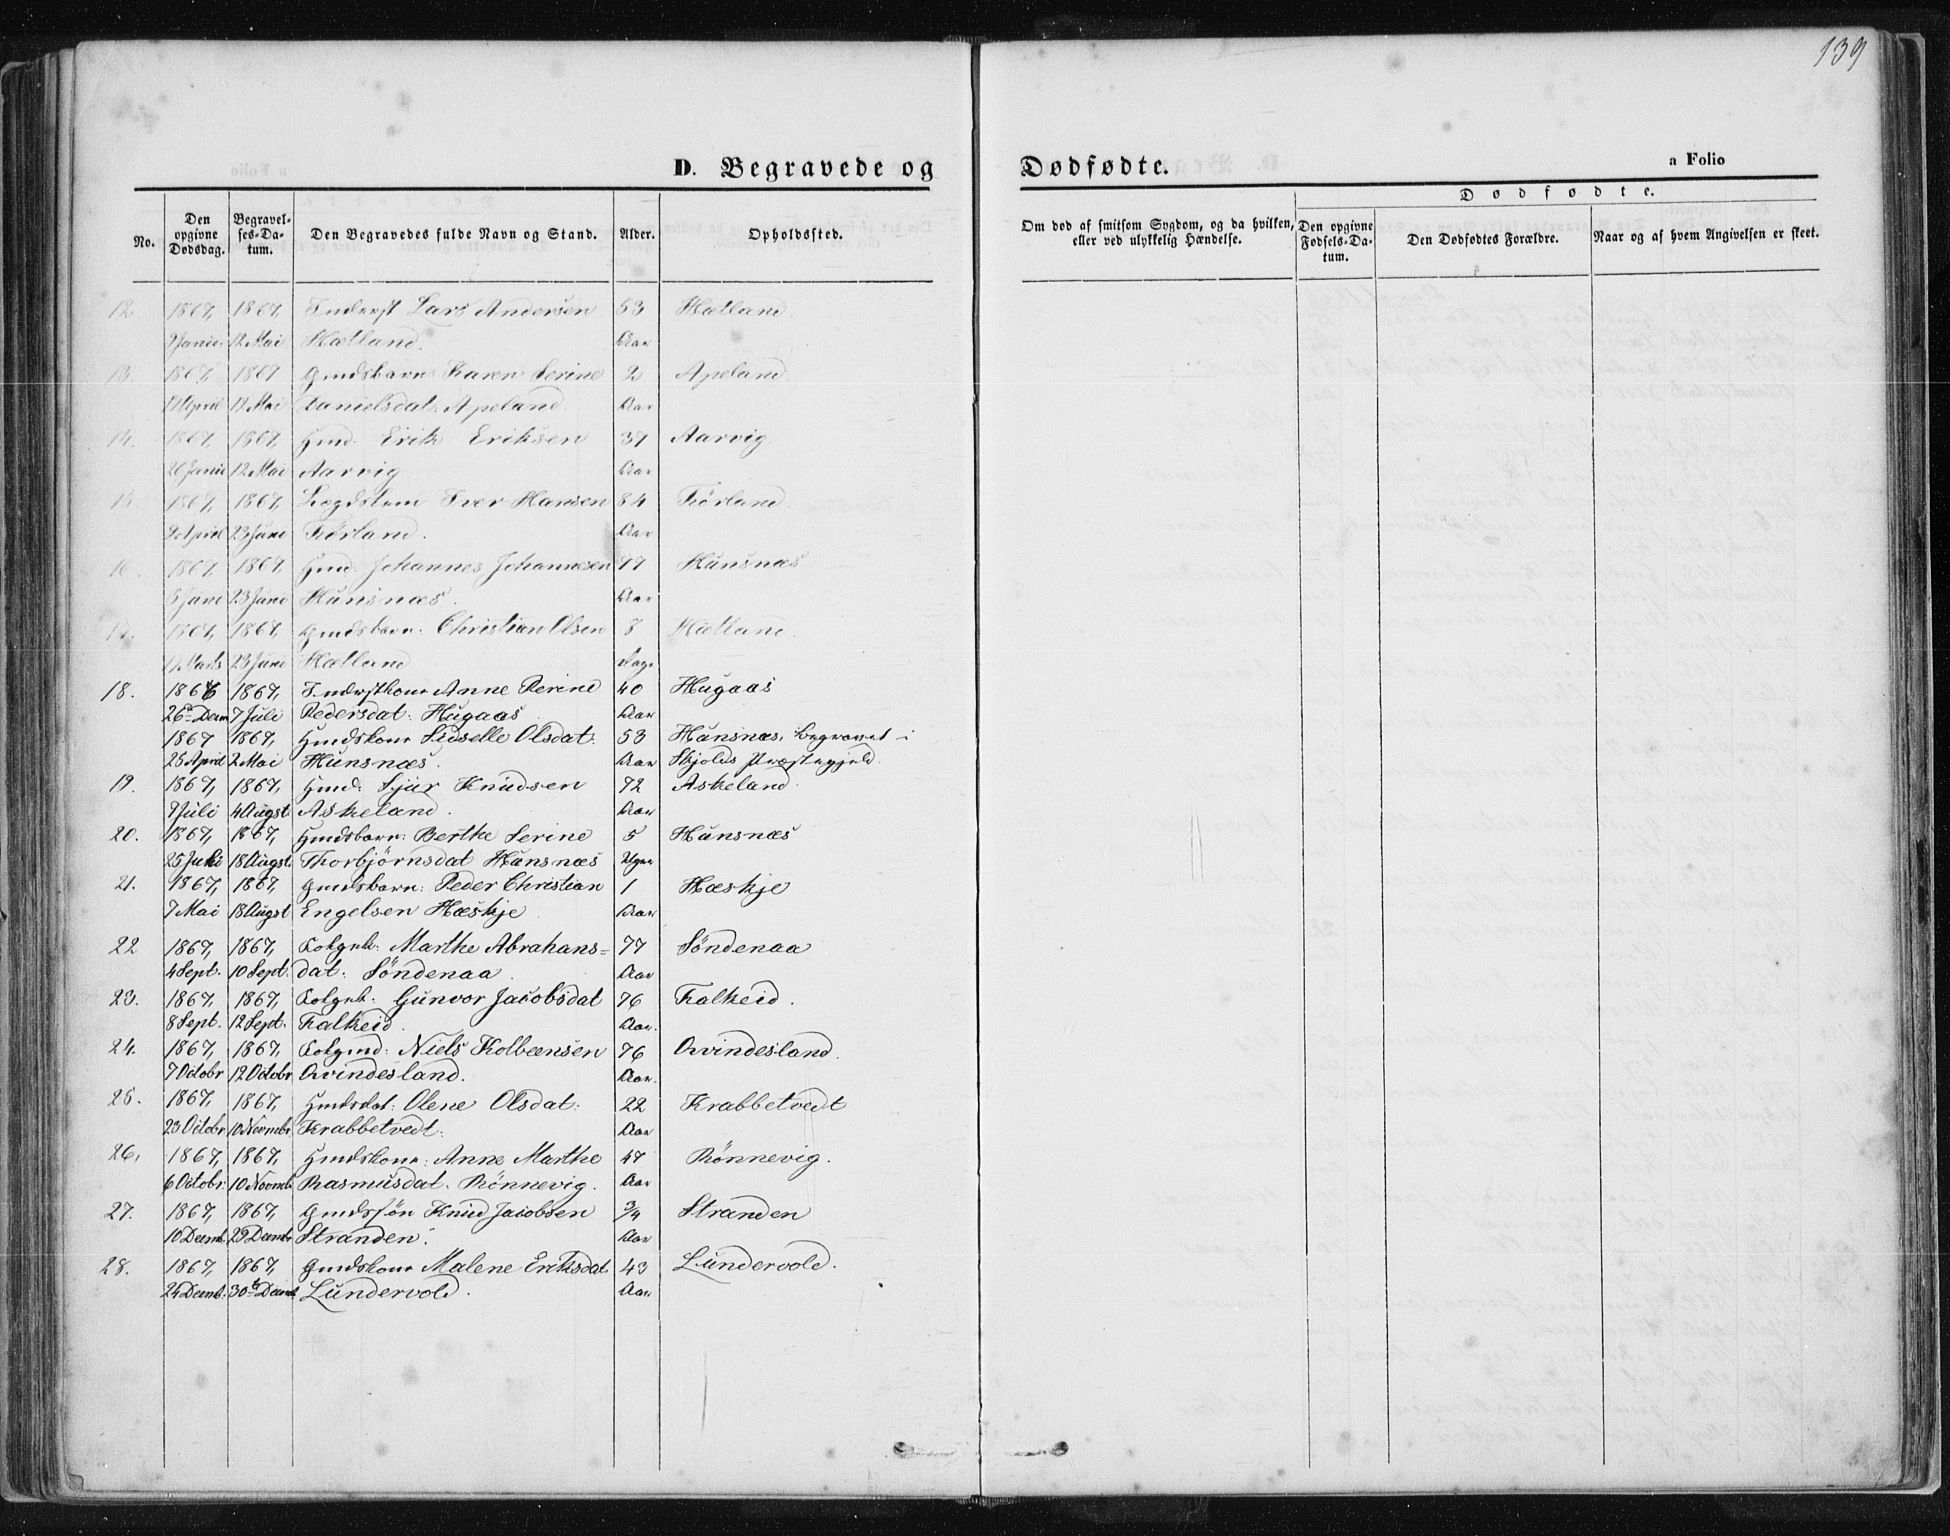 139
D. Begravede og Dødfødte.
a Folio
Dødfødte.
No.
Den opgivne Dødsdag.
Begravelses-Datum.
Den Begravedes fulde Navn og Stand.
Alder.
Opholdssted.
Om død af smitsom Sygdom, og da hvilken, eller ved ulykkelig Hændelse.
Den opgivne Fødsels-Datum.
Den Dødfødtes Forældre.
Naar og af hvem Angivelsen er skeet.
12 1867, 1867, Inderst Lars Andersen 53 Hætland
12 Mai Hætland. Aar
13. 1867, 1867 Gmdsbarn: Karen Serine 2 Apeland
12 Mai Danielsdat: Apeland. Aar
14. 1867, 1867, Gmd: Erik Eriksen 37 Aarvig
12 Mai Aarvig Aar
15 1867, 1867, Lægdslem Iver Hansen 84 Førland
April 23 Juni Førland. Aar
16 1867, 1867, Gmd: Johannes Johannesen 77 Hunsnæs
Juni 23 Juni Hunsnæs. Aar
17. 1867, 1867, Gmdsbarn: Christian Olsen 8 Hætland.
Marts 23 Juni Hætland Dage
18. 1866 1867, Inderstkone Anne Perine 40 Hugaas
26 Decm 7 Juli Pedersdat: Hugaas. Aar
1867 1867, Gmdskone Sidselle Olsdat: 53 Hunsnæs, begravet i
25 April 2 Mai Hunsnæs. Aar Skjolds Præstegjeld.
19. 1867, 1867, Gmd: Sjur Knudsen 72 Askeland.
Juli 4 Augst Askeland. Aar
20. 1867, 1867, Gmdsbarn: Berthe Serine 5 Hunsnæs
25 18 Augst. Thorbjørnsdat Hunsnæs Uger
21. 1867, 1867, Gmdsbarn: Peder Christian 1 Hæskje
7 Mai 18 Augst Engelsen Hæskje Aar
22 1867, 1867, Folgek: Marthe Abrahams= 77 Søndenaa
4 Sept. 10 Sept. dat: Søndenaa. Aar
23. 1867, 1867, Folgek: Gunvor Jacobsdat 76 Falkeid.
8 Sept. 12 Sept. Falkeid. Aar.
24. 1867, 1867, Folgmd: Niels Kolbeensen 76 Qvindesland.
7 Octobr 12 Octobr Qvindesland. Aar.
25. 1867, 1867, Gmdsdat: Olene Olsdat: 22 Krabbetvedt
23 Octobr 10 Novmbr Krabbetvedt. Aar
26, 1867, 1867, Gmdskone: Anne Marthe 47 Rönnevig.
6 Octobr. 10 Novmb. Rasmusdat. Rönnevig. Aar
27. 1867, 1867, Gmdssøn Knud Jacobsen 3/4 Stranden
10 Decmb. 29 Decmbr Stranden. Aar
28. 1867, 1867, Gmdskone Malene Eriksdat 43 Lundervold.
24 Decmb. 30 Decmb. Lundervold. Aar